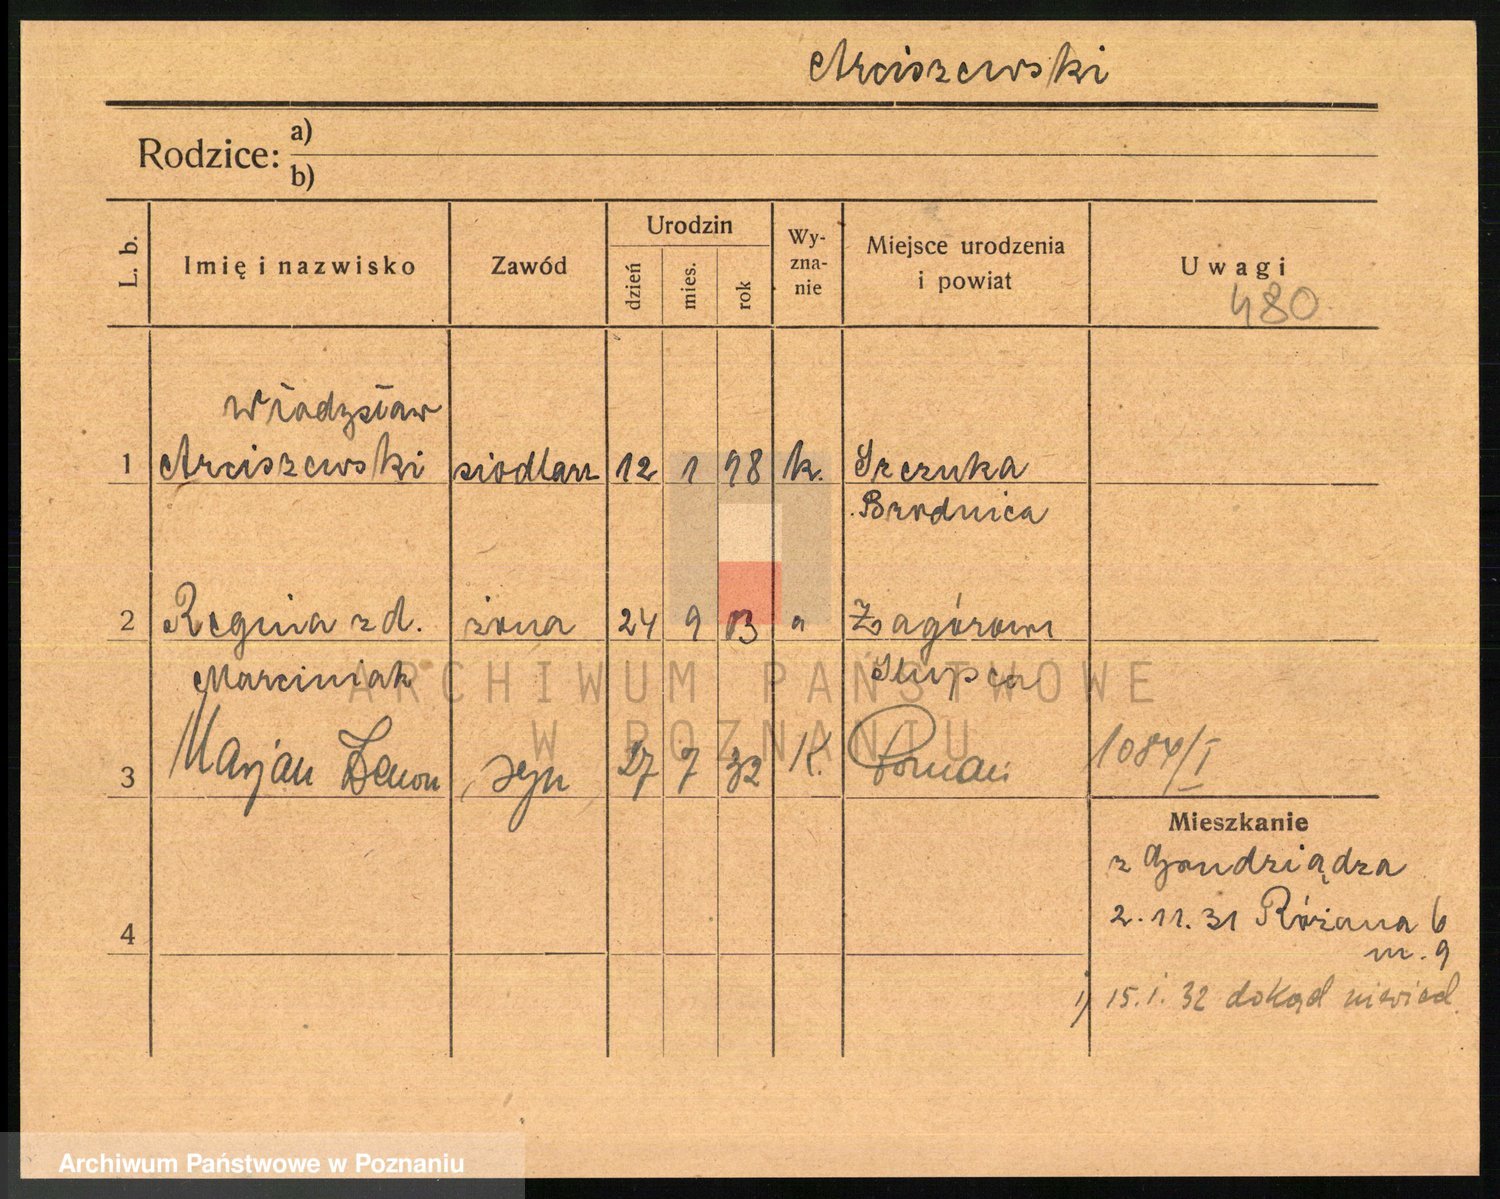 Arciszewski
Rodzice: a)
b)
L. b.
Imię i nazwisko
Zawód
Urodzin
dzień
mies.
rok
Wy-
zna-
nie
Miejsce urodzenia
i powiat
Uwagi
480
Władysław
1 Arciszewski siodlarz 12 1 98 k. Szczuka
Brodnica
2 Regina z d. żona 24 9 03 " Zagórowi
Marciniak Słupca
3 Marjan Zenon syn 27 7 32 K. Poznań 1084/I
Mieszkanie
z Grudziądza
4
2.11.31 Różana 6
m. 9
1) 15.1.32 dokąd niewiad.
ARCHIWUM PAŃSTWOWE
W POZNANIU
Archiwum Państwowe w Poznaniu